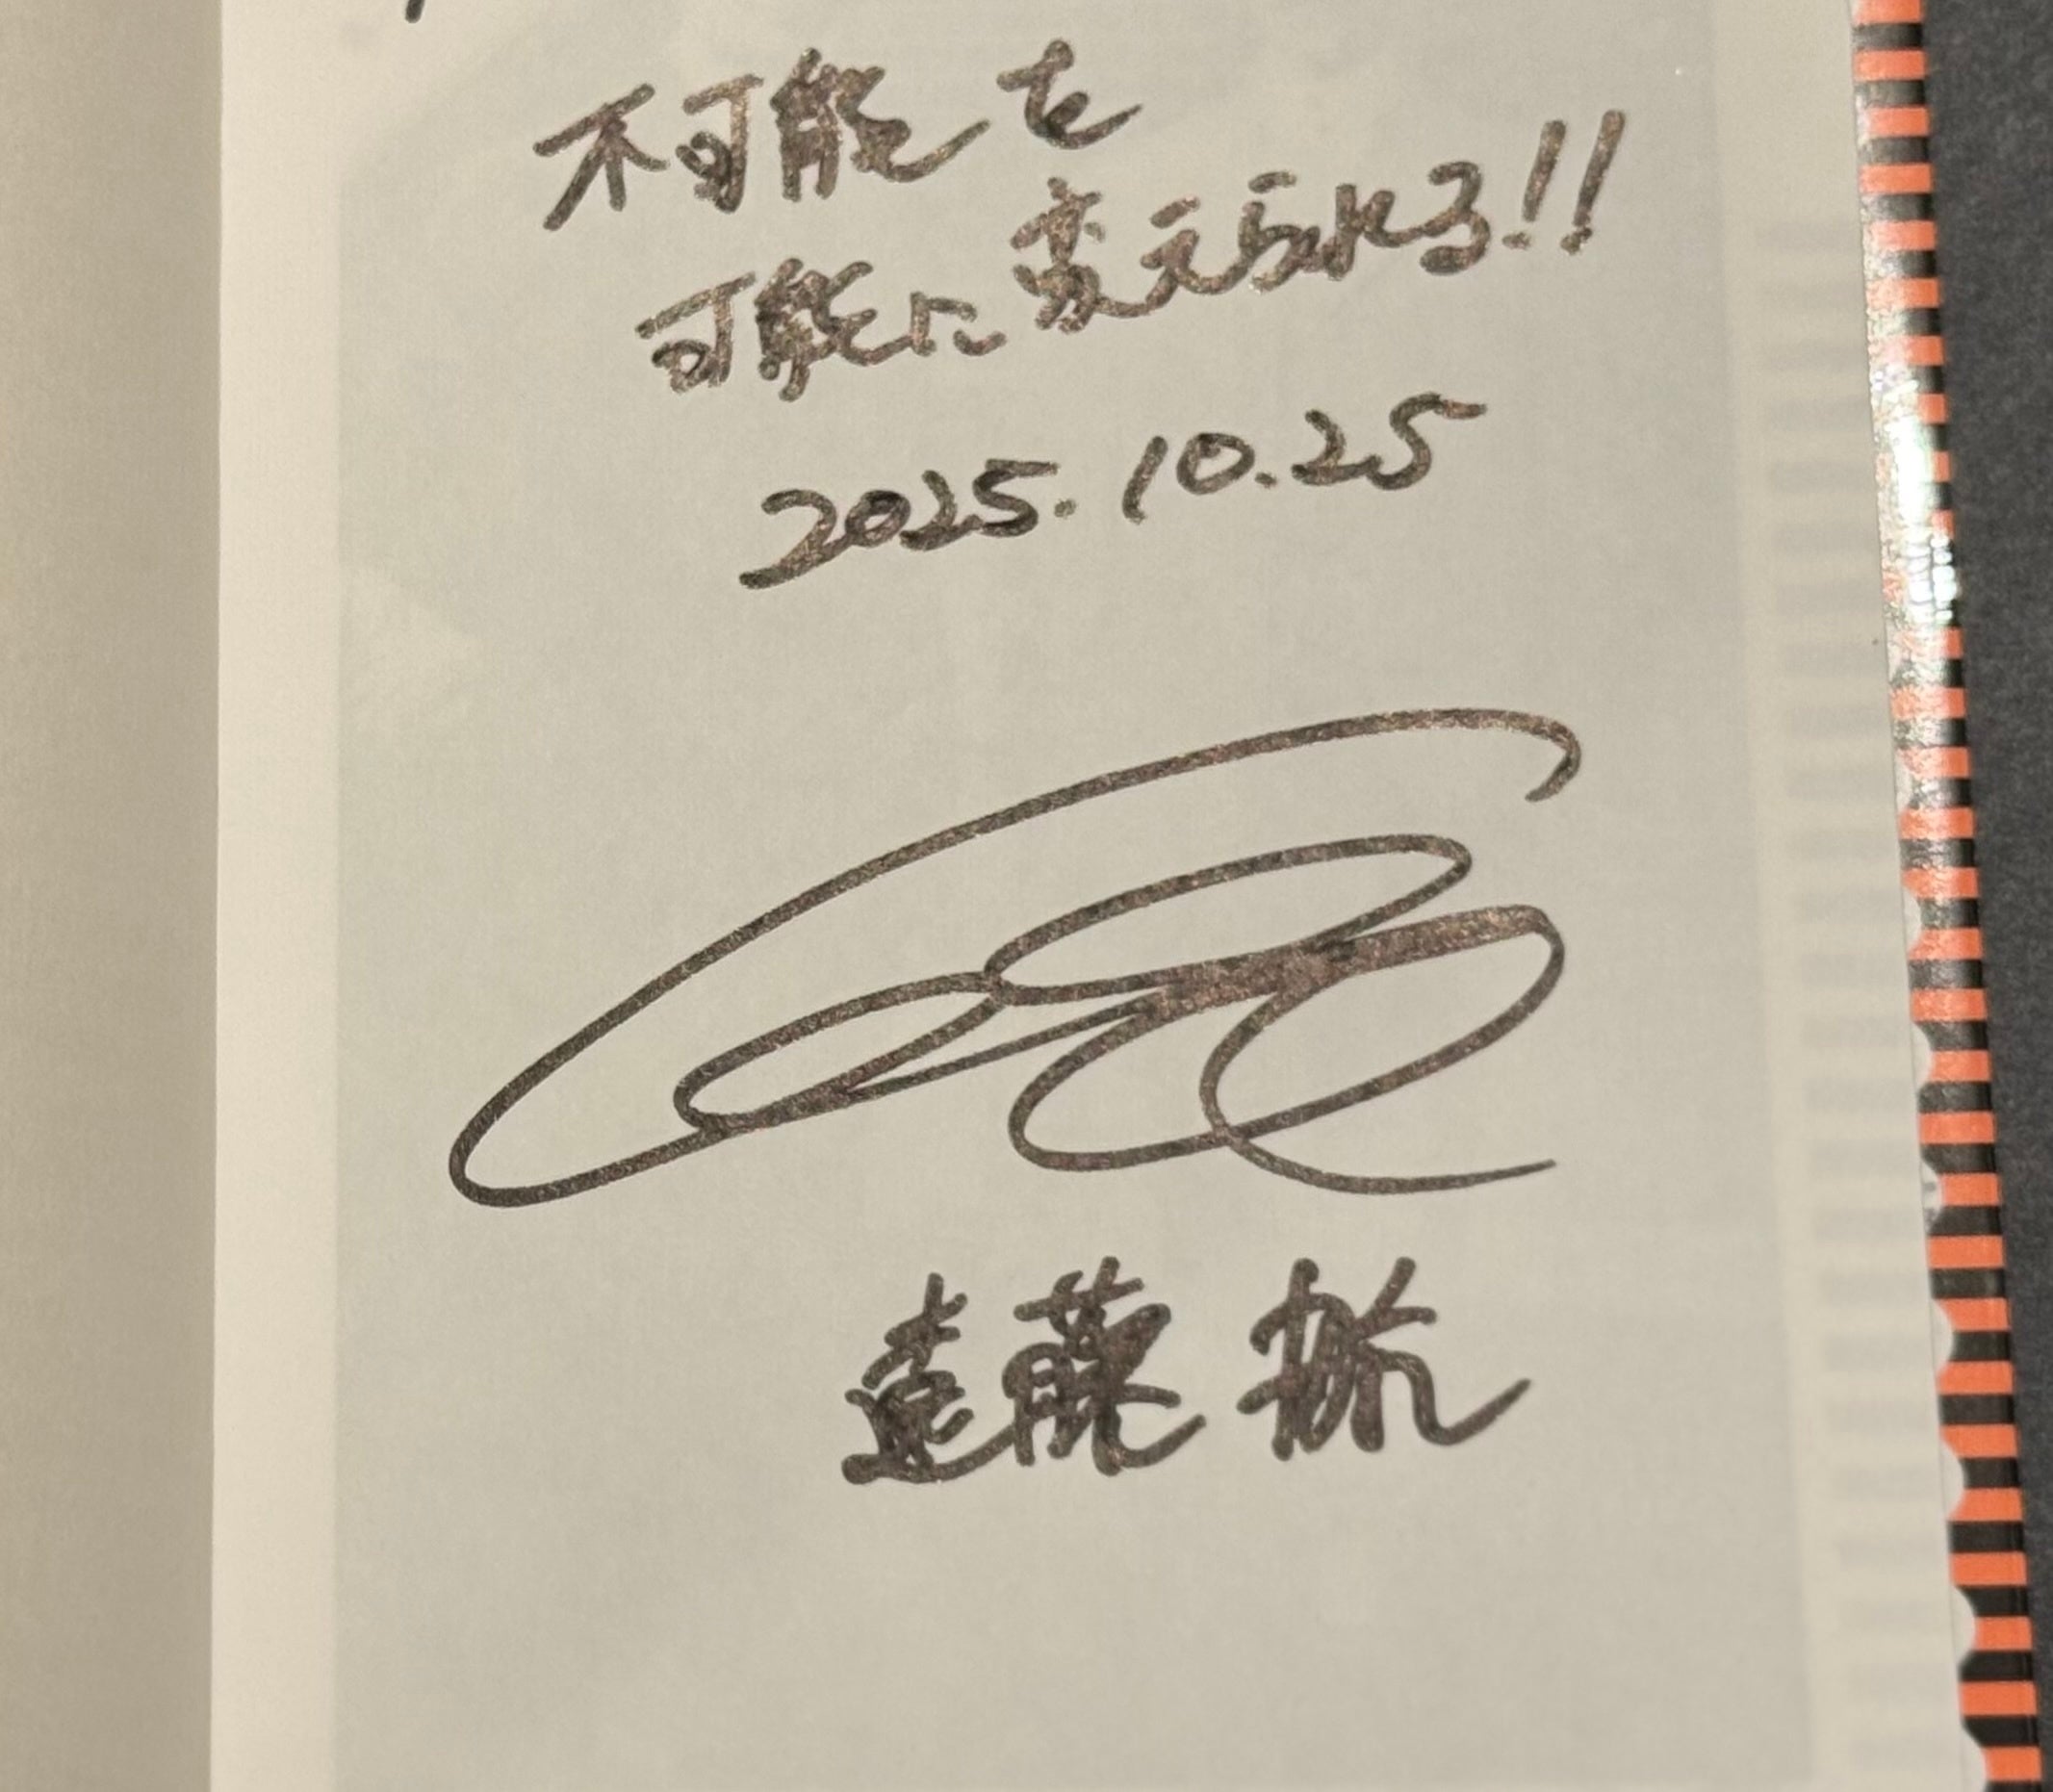 不可能を
可能に変えられる!!
2025.10.25
遠藤 航